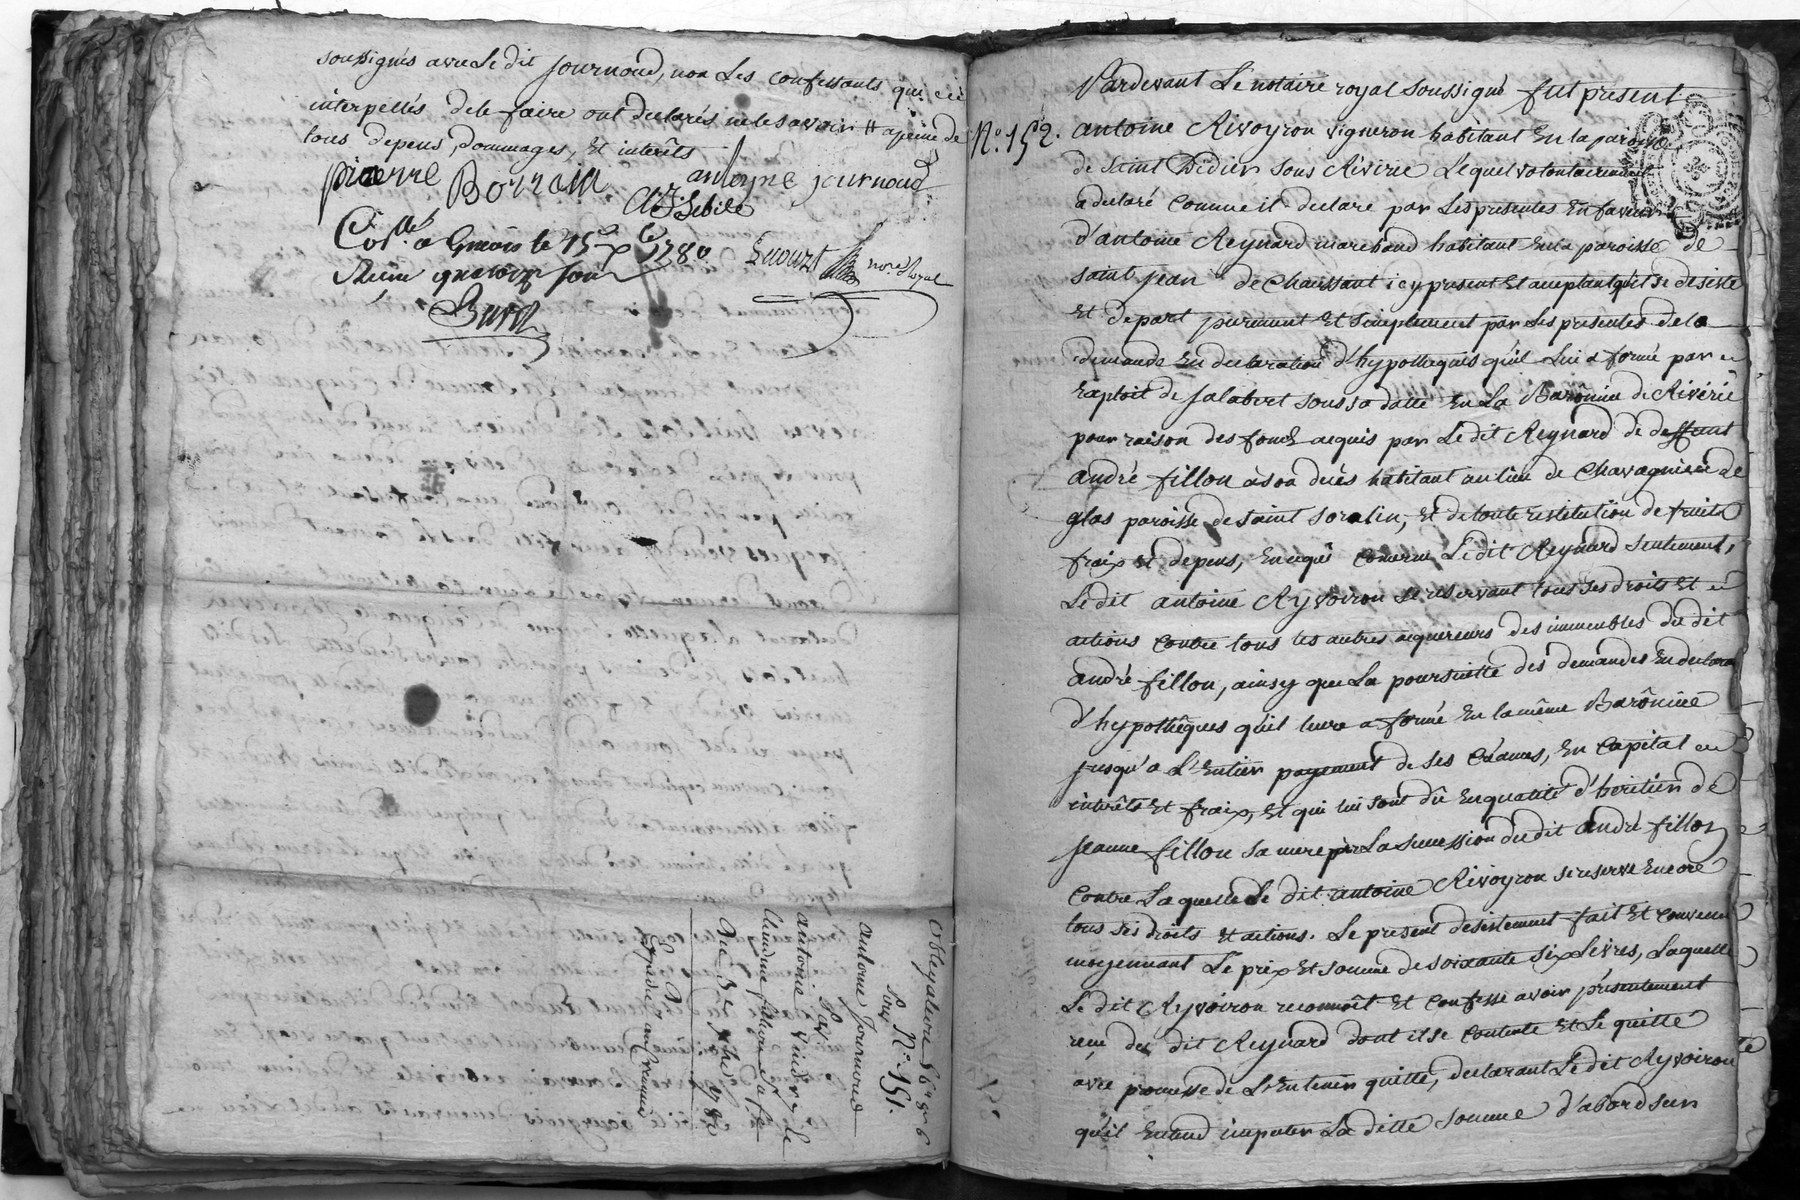 soussignés avec Le dit journoud, non Les confessants qui de ce
interpellés de le faire ont declarés ne le savoir # a peine de
tous depens, dommages, et interêts
pierre Borrain antoyne journoud
Sebile
Con.lé a le 15
1780.
no.re Royal
obligation
N.° 151.
Pour
antoine Journoud
Par
antoine
Claudine sa f.e
Expedié en
N.° 152.
Pardevant Le notaire royal soussigné fut present
antoine Rivoyron vigneron habitant En la paroisse
de saint Didier sous Riverie Lequel volontairement
a declaré comme il declare par Les presentes En faveur
d'antoine Reynard marchand habitant En la paroisse de
saint jean de Chaussant icy present Et acceptant qu'il se desiste
Et depart purement Et simplement par Les presentes de la
demande En declaration d'hypotheques qu'il Lui a formé par
Exploit de jalabert sous sa datte En La Barônnie de Riverie
pour raison des fonds acquis par Le dit Reynard de deffunt
andré fillon à son decés habitant au lieu de
glas paroisse de saint sorolin, Et de toute restitution de fruits
fraix et depens, En ce qui concerne Le dit Reynard seulement,
Le dit antoine Ryvoiron se reservant tous ses droits Et
actions contre tous les autres acquereurs des immeubles du dit
andré fillon, ainsy que La poursuitte des demandes En declaraõn
d'hypothêques qu'il leur a formé En la même Barônnie
jusqu'a L'Entier payement de ses Créances, En Capital
interêts Et fraix, Et qui lui sont dû En qualité d'heritier de
jeanne fillon sa mere par La succession du dit andré fillon
contre Laquelle Le dit antoine Rivoyron se reserve Encore
tous ses droits Et actions. Le present desistement fait Et convenu
moyennant Le prix Et somme de soixante six Livres, Laquelle
Le dit Ryvoiron reconnoît Et confesse avoir présentement
reçu du dit Reynard dont il se contente Et Le quitte
avec promesse de L'En tenir quitte, declarant Le dit Ryvoiron
qu'il Entend imputer La ditte somme d'abord sur